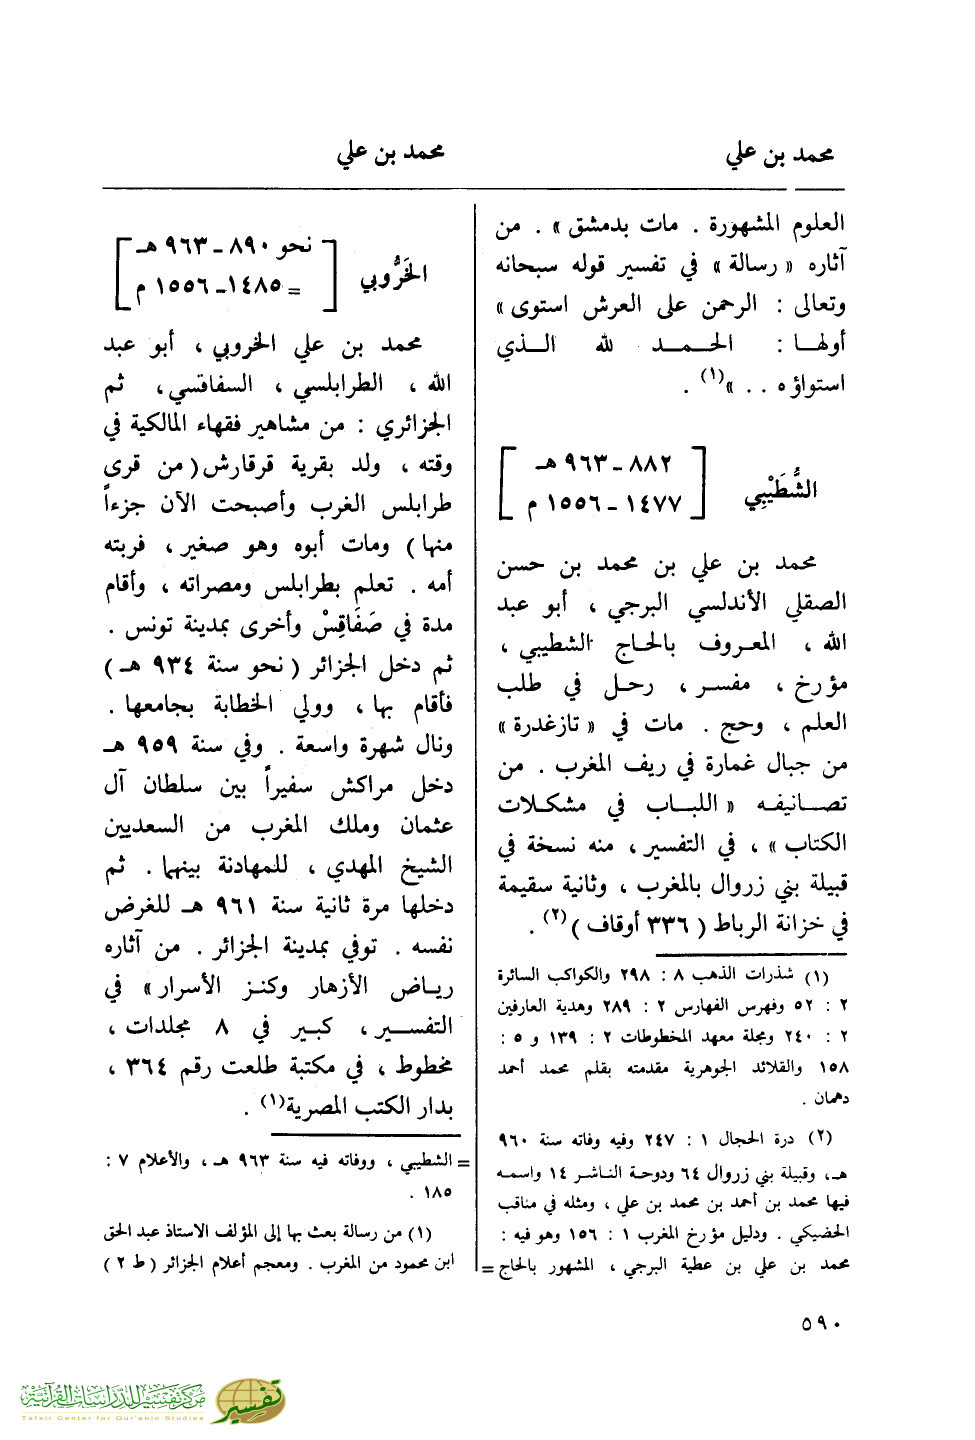 محمد بن علي
محمد بن علي
العلوم المشهورة . مات بدمشق » . من
آثاره « رسالة » في تفسير قوله سبحانه
وتعالى : الرحمن على العرش استوى »
أولها : الحمد لله الذي
استواؤه . . »(١) .
الشُّطَيْبِي
٨٨٢ ـ ٩٦٣ هـ
١٤٧٧ ـ ١٥٥٦ م
محمد بن علي بن محمد بن حسن
الصقلي الأندلسي البرجي ، أبو عبد
الله ، المعروف بالحاج الشطيبي ،
مؤرخ ، مفسر ، رحل في طلب
العلم ، وحج . مات في « تازغدرة »
من جبال غمارة في ريف المغرب . من
تصانيفه « اللباب في مشكلات
الكتاب » ، في التفسير ، منه نسخة في
قبيلة بني زروال بالمغرب ، وثانية سقيمة
في خزانة الرباط ( ٣٣٦ أوقاف )(٢) .
(١) شذرات الذهب ٨ : ٢٩٨ والكواكب السائرة
٢ : ٥٢ وفهرس الفهارس ٢ : ٢٨٩ وهدية العارفين
٢ : ٢٤٠ ومجلة معهد المخطوطات ٢ : ١٣٩ و ٥ :
١٥٨ والقلائد الجوهرية مقدمته بقلم محمد أحمد
دهمان .
(٢) درة الحجال ١ : ٢٤٧ وفيه وفاته سنة ٩٦٠
هـ، وقبيلة بني زروال ٦٤ ودوحة الناشر ١٤ واسمه
فيها محمد بن أحمد بن محمد بن علي ، ومثله في مناقب
الحضيكي . ودليل مؤرخ المغرب ١ : ١٥٦ وهو فيه :
محمد بن علي بن عطية البرجي ، المشهور بالحاج =
الخَرُّوبي
نحو ٨٩٠ ـ ٩٦٣ هـ
= ١٤٨٥ ـ ١٥٥٦ م
محمد بن علي الخروبي ، أبو عبد
الله ، الطرابلسي ، السفاقسي، ثم
الجزائري : من مشاهير فقهاء المالكية في
وقته ، ولد بقرية قرقارش (من قرى
طرابلس الغرب وأصبحت الآن جزءاً
منها ) ومات أبوه وهو صغير ، فربته
أمه . تعلم بطرابلس ومصراته ، وأقام
مدة في صَفَاقِسْ وأخرى بمدينة تونس .
ثم دخل الجزائر ( نحو سنة ٩٣٤ هـ )
فأقام بها ، وولي الخطابة بجامعها .
ونال شهرة واسعة . وفي سنة ٩٥٩ هـ
دخل مراكش سفيراً بين سلطان آل
عثمان وملك المغرب من السعديين
الشيخ المهدي ، للمهادنة بينهما . ثم
دخلها مرة ثانية سنة ٩٦١ هـ للغرض
نفسه . توفي بمدينة الجزائر . من آثاره
رياض الأزهار وكنز الأسرار» في
التفسير ، كبير في ٨ مجلدات ،
مخطوط ، في مكتبة طلعت رقم ٣٦٤ ،
بدار الكتب المصرية(١) .
= الشطيبي ، ووفاته فيه سنة ٩٦٣ هـ ، والأعلام ٧ :
١٨٥ .
(١) من رسالة بعث بها إلى المؤلف الاستاذ عبد الحق
ابن محمود من المغرب . ومعجم أعلام الجزائر ( ط ٢ )
٥٩٠
مركز تفسير للدراسات القرآنية
Tafsir Center for Qur'anic Studies
تفسير